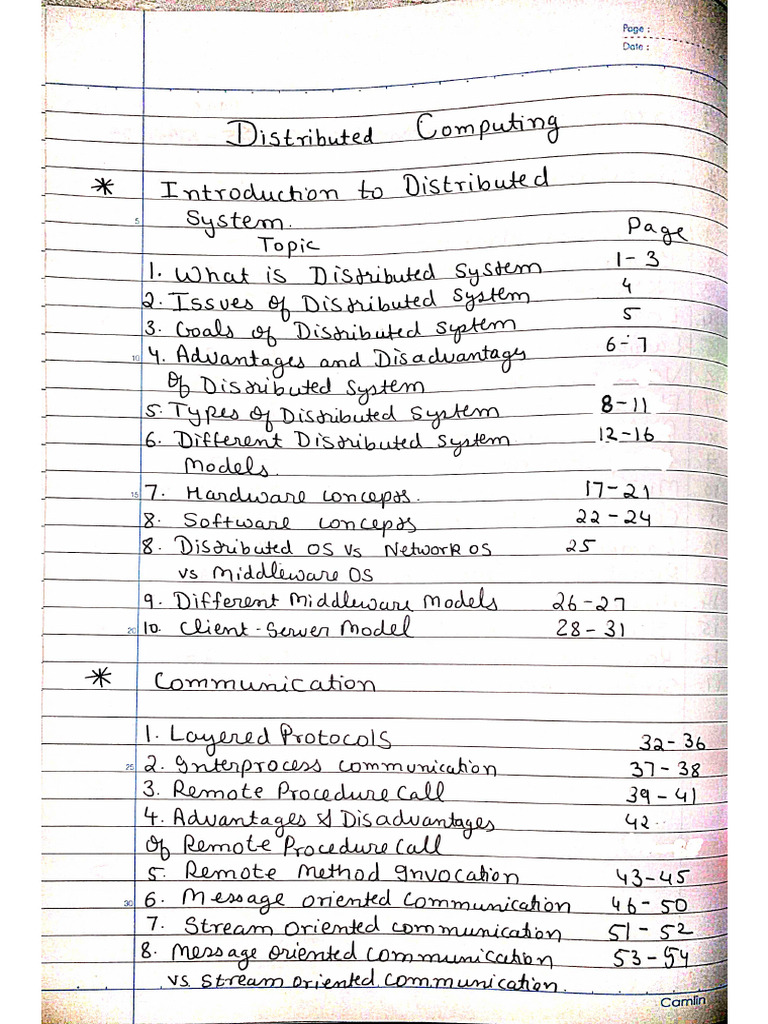 Page :
Date :
Distributed Computing
* Introduction to Distributed
System.
Topic Page
1. What is Distributed System 1-3
2. Issues of Distributed System 4
3. Goals of Distributed System 5
4. Advantages and Disadvantages 6-7
Of Distributed System
5. Types of Distributed System 8-11
6. Different Distributed System 12-16
Models.
7. Hardware concepts. 17-21
8. Software concepts 22-24
8. Distributed OS vs Network OS 25
vs Middleware OS
9. Different Middleware Models 26-27
10. Client-Server Model 28-31
* Communication
1. Layered Protocols 32-36
2. Interprocess communication 37-38
3. Remote Procedure Call 39-41
4. Advantages & Disadvantages 42
Of Remote Procedure Call
5. Remote Method Invocation 43-45
6. Message oriented Communication 46-50
7. Stream Oriented communication 51-52
8. Message oriented communication 53-54
vs Stream oriented communication.
5
10
15
20
25
30
Camlin